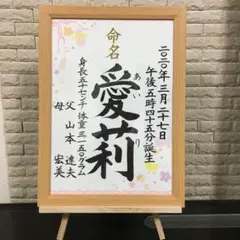 命名
二〇二〇年 三月 二十七日
午後五時四十五分誕生
愛莉
あい
り
身長五十七センチ 体重三一五〇グラム
父 山本 達夫
母 宏美